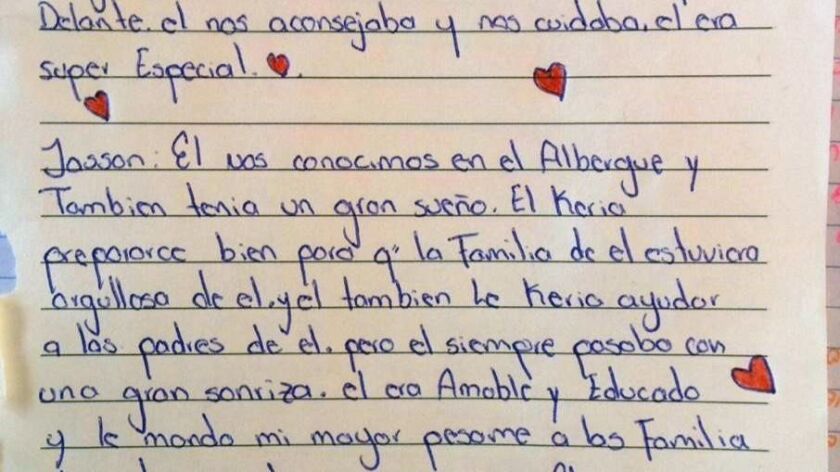 Delante. el nos aconsejaba y nos cuidaba. el era
super Especial.
Jasson: El nos conocimos en el Albergue y
Tambien tenia un gran sueño. El Keria
prepararce bien para q' la Familia de el estuviera
orgullosa de el. y el tambien le Keria ayudar
a los padres de el. pero el siempre pasaba con
una gran sonriza. el era Amable y Educado
y le mando mi mayor pesame a los Familia